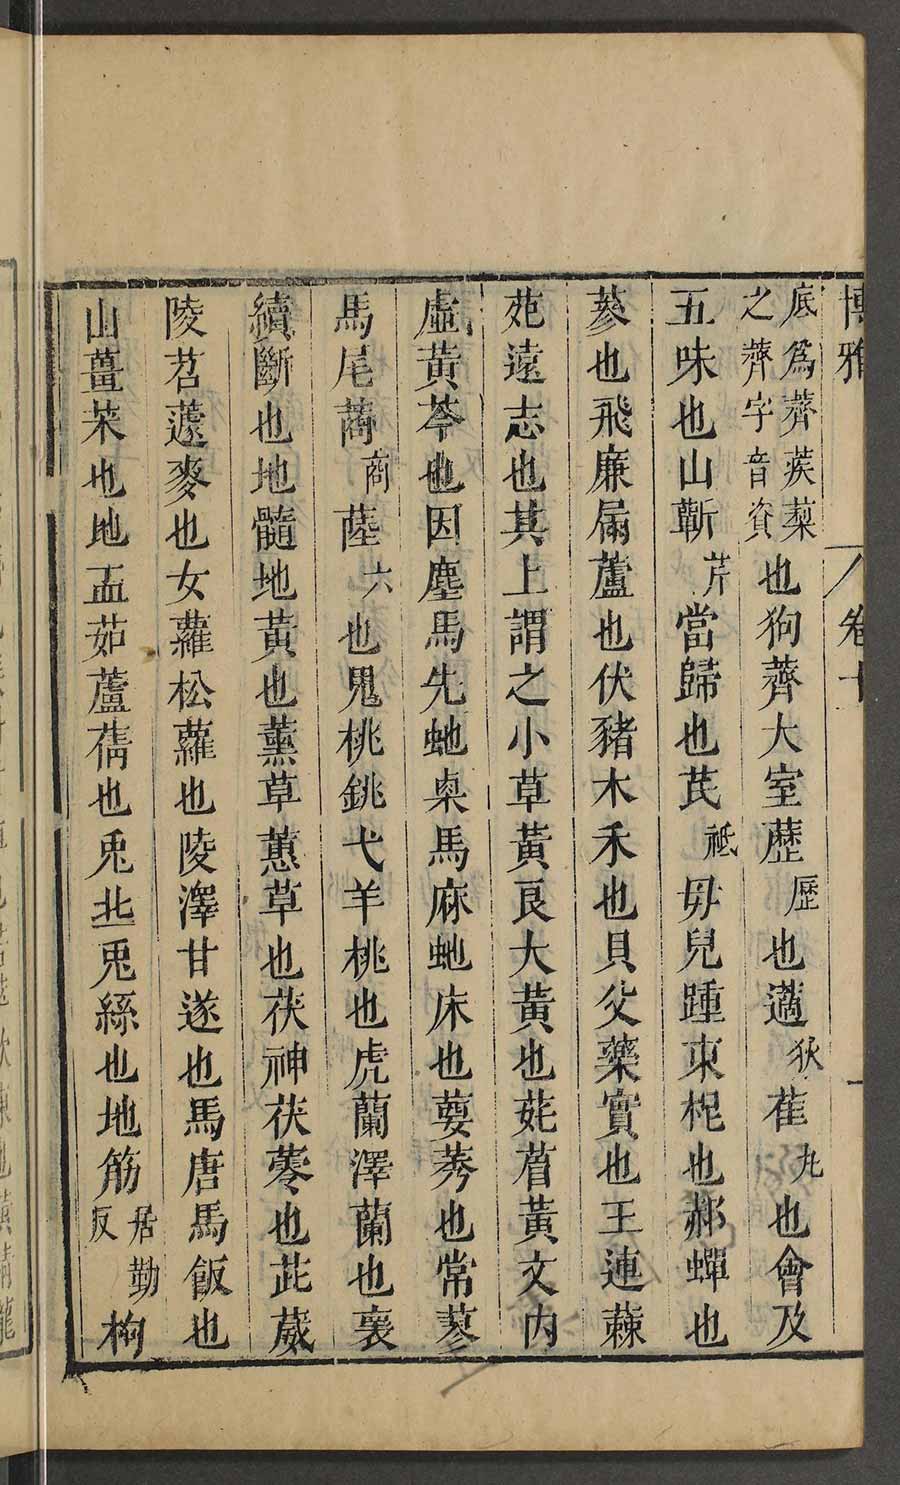 博雅 卷十
底爲薺蒺蔾之薺字音資也狗薺大室藶歷也藡狄萑丸也會及
五味也山蘄芹當歸也芪祗毋兒踵東根也郝蟬也
蔘也飛廉屚蘆也伏豬木禾也貝父藥實也王連蕀
苑遠志也其上謂之小草黃良大黃也菧苩黃文內
虛黃芩也因塵馬先虵粟馬麻虵床也葽莠也常蓼
馬尾蔏商蓙六也鬼桃銚弋羊桃也虎蘭澤蘭也裹
續斷也地髓地黃也薰草蕙草也茯神茯蕶也茈葳
陵苕蘧麥也女蘿松蘿也陵澤甘遂也馬唐馬飯也
山薑茱也地血茹蘆蒨也兎丠兎絲也地筋居勤反枸